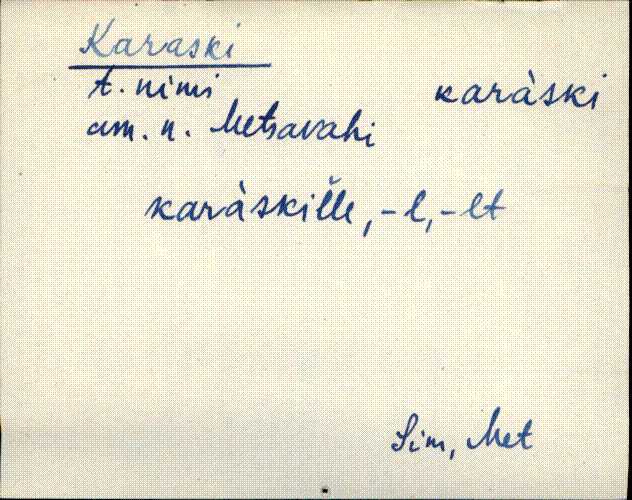 Karaski
t. nimi
karàski
am. n. Metsavahi
karàskiĺle, -l, -lt
Sim, Met